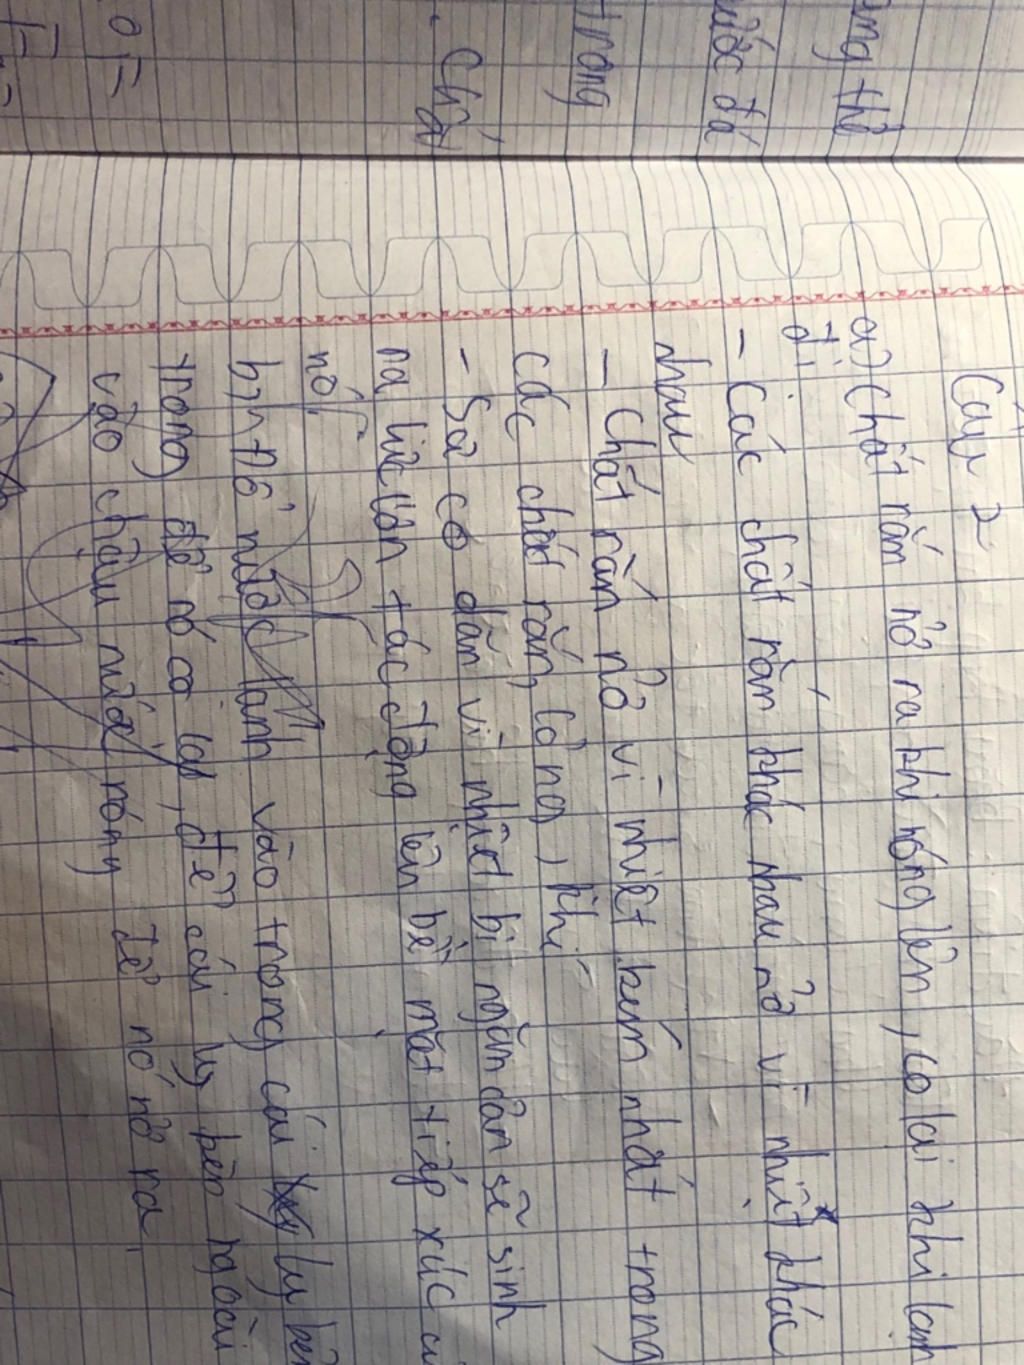 Câu 2
a) Chất rắn nở ra khi nóng lên, co lại khi lạnh
đi
- Các chất rắn khác nhau nở vì nhiệt khác
nhau
- Chất rắn nở vì nhiệt kém nhất trong
các chất rắn, lỏng, khí
- Sự co dãn vì nhiệt bị ngăn cản sẽ sinh
ra lực lớn tác động lên bề mặt tiếp xúc
nó.
Đổ nước lạnh vào trong cái ly
trong để nó co lại, để cái ly bên ngoài
vào chậu nước nóng để nó nở ra.
ước đá
trong
Chất